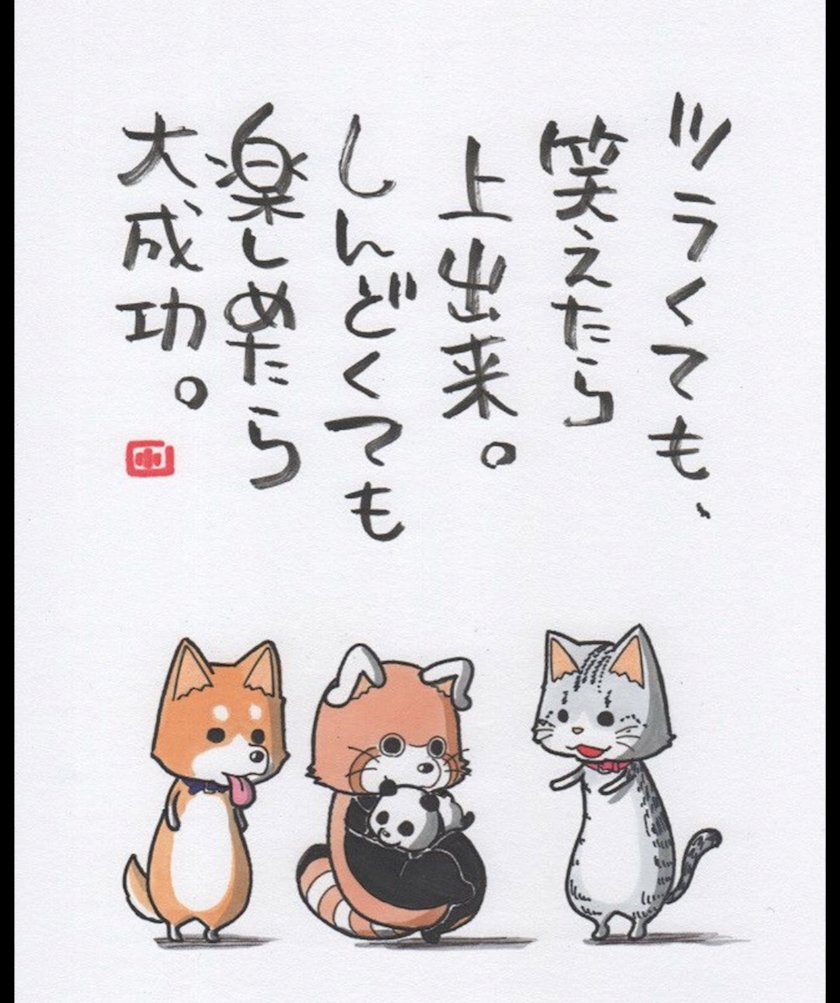 ツラくても、
笑えたら
上出来。
しんどくても
楽しめたら
大成功。